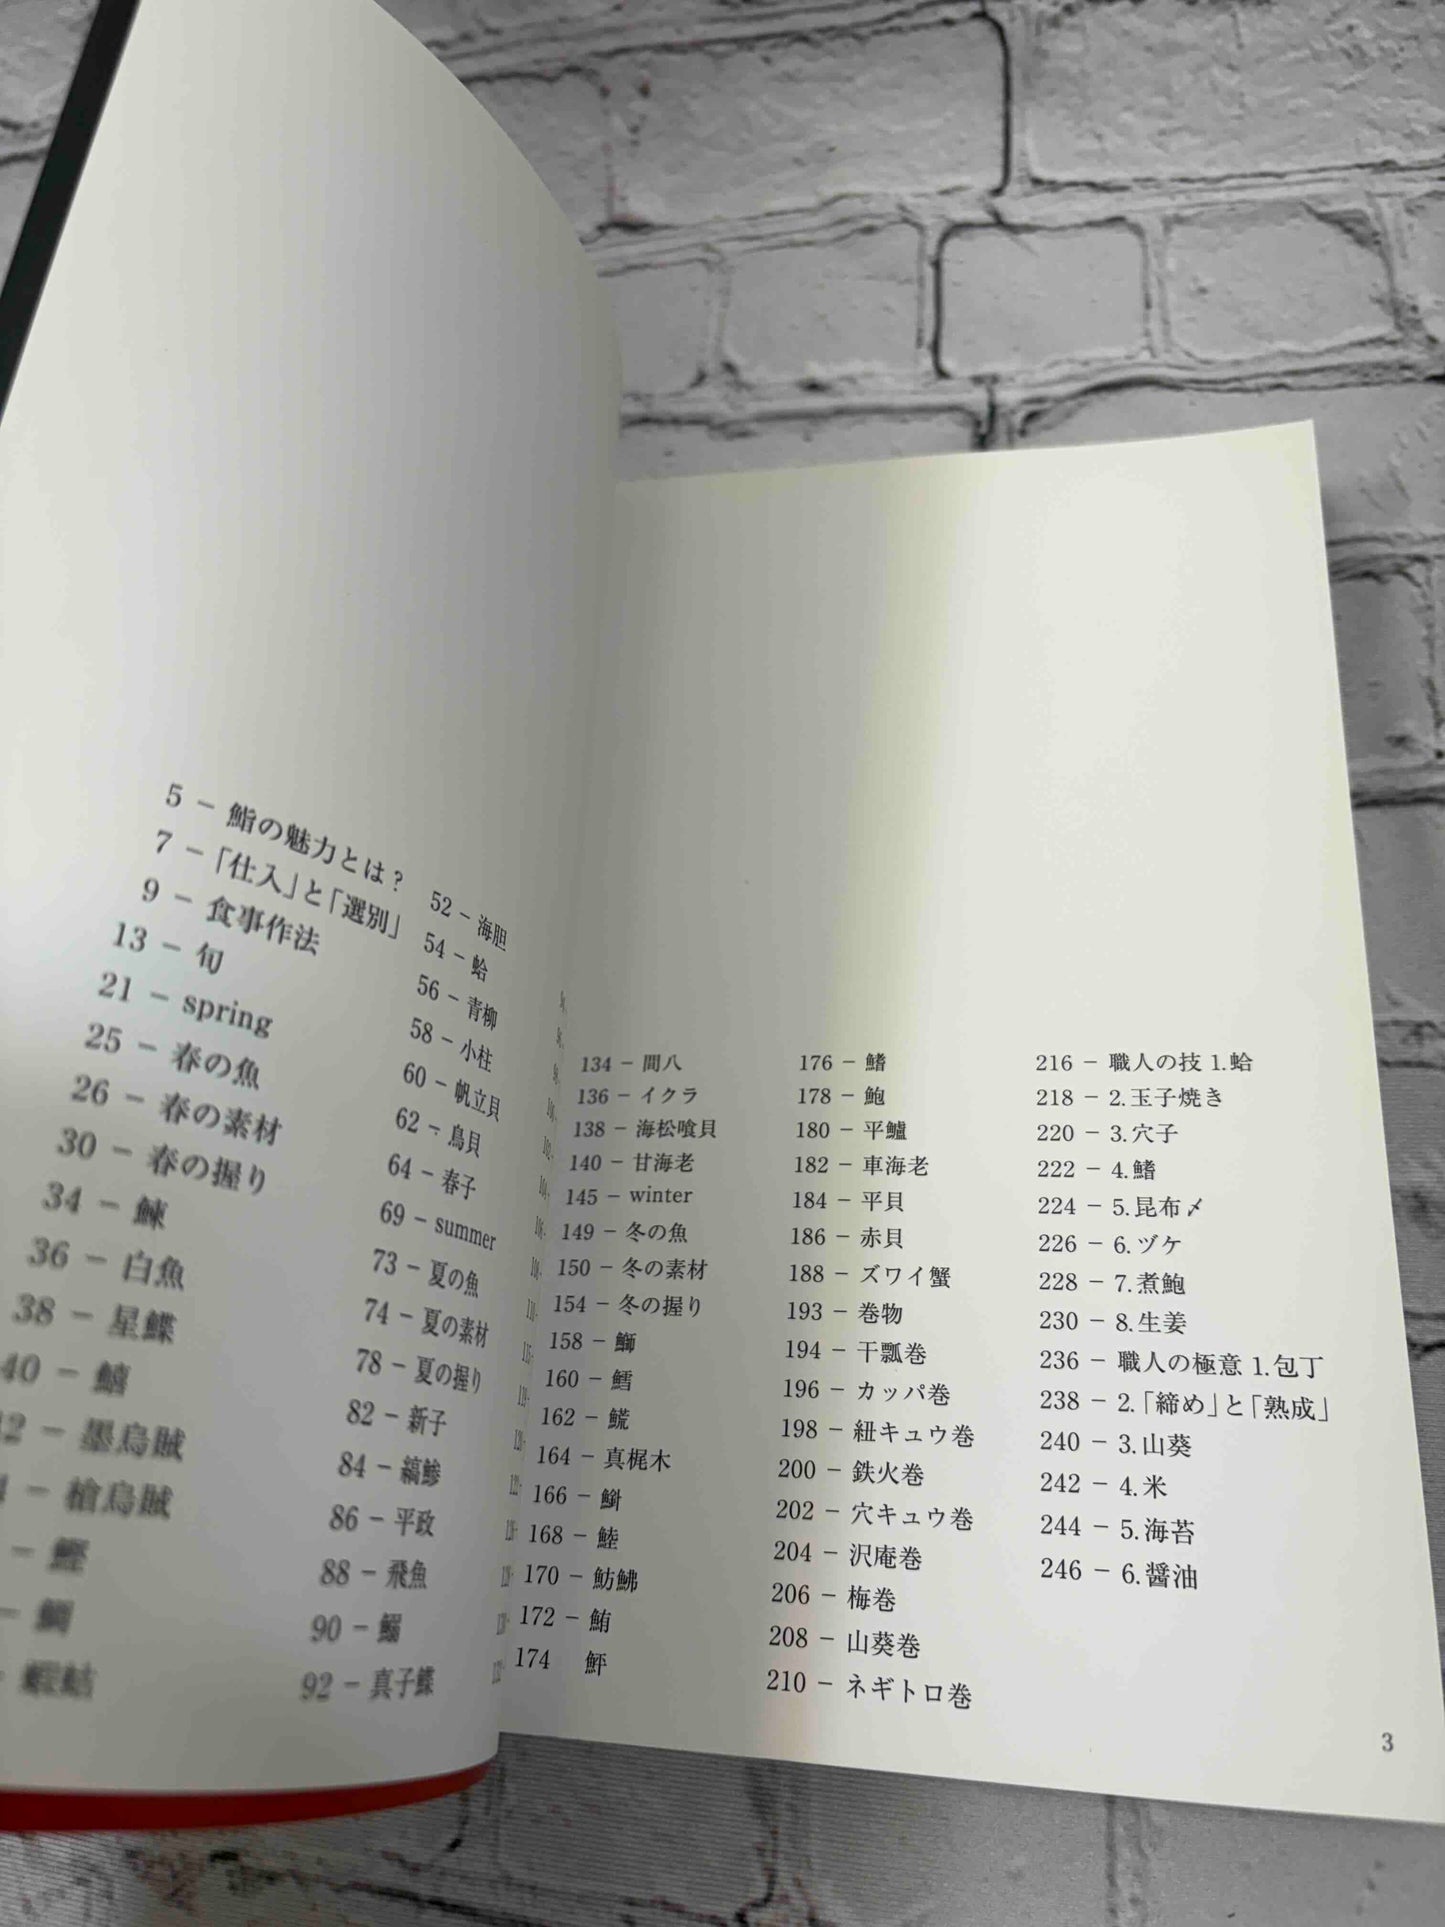 5 − 鮨の魅力とは?
7 −「仕入」と「選別」
9 − 食事作法
13 − 旬
21 − spring
25 − 春の魚
26 − 春の素材
30 − 春の握り
34 − 鰊
36 − 白魚
38 − 星鰈
40 − 鱚
墨烏賊
槍烏賊
52 − 海胆
54 − 蛤
56 − 青柳
58 − 小柱
60 − 帆立貝
62 − 鳥貝
64 − 春子
69 − summer
73 − 夏の魚
74 − 夏の素材
78 − 夏の握り
82 − 新子
84 − 縞鯵
86 − 平政
88 − 飛魚
90 − 鰯
92 − 真子鰈
134 − 間八
136 − イクラ
138 − 海松喰貝
140 − 甘海老
145 − winter
149 − 冬の魚
150 − 冬の素材
154 − 冬の握り
158 − 鰤
160 − 鱈
162 − 鯍
164 − 真梶木
166 −
168 −
170 − 魴鮄
172 − 鮪
174
176 − 鰭
178 − 鮑
180 − 平鱸
182 − 車海老
184 − 平貝
186 − 赤貝
188 − ズワイ蟹
193 − 巻物
194 − 干瓢巻
196 − カッパ巻
198 − 紐キュウ巻
200 − 鉄火巻
202 − 穴キュウ巻
204 − 沢庵巻
206 − 梅巻
208 − 山葵巻
210 − ネギトロ巻
216 − 職人の技 1.蛤
218 − 2.玉子焼き
220 − 3.穴子
222 − 4.鰭
224 − 5.昆布〆
226 − 6.ヅケ
228 − 7.煮鮑
230 − 8.生姜
236 − 職人の極意 1.包丁
238 − 2.「締め」と「熟成」
240 − 3.山葵
242 − 4.米
244 − 5.海苔
246 − 6.醤油
3